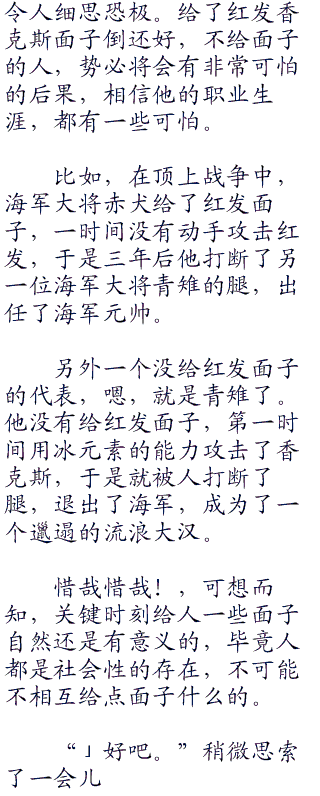 令人细思恐极。给了红发香
克斯面子倒还好，不给面子
的人，势必将会有非常可怕
的后果，相信他的职业生
涯，都有一些可怕。
比如，在顶上战争中，
海军大将赤犬给了红发面
子，一时间没有动手攻击红
发，于是三年后他打断了另
一位海军大将青雉的腿，出
任了海军元帅。
另外一个没给红发面子
的代表，嗯，就是青雉了。
他没有给红发面子，第一时
间用冰元素的能力攻击了香
克斯，于是就被人打断了
腿，退出了海军，成为了一
个邋遢的流浪大汉。
惜哉惜哉！，可想而
知，关键时刻给人一些面子
自然还是有意义的，毕竟人
都是社会性的存在，不可能
不相互给点面子什么的。
“」好吧。”稍微思索
了一会儿